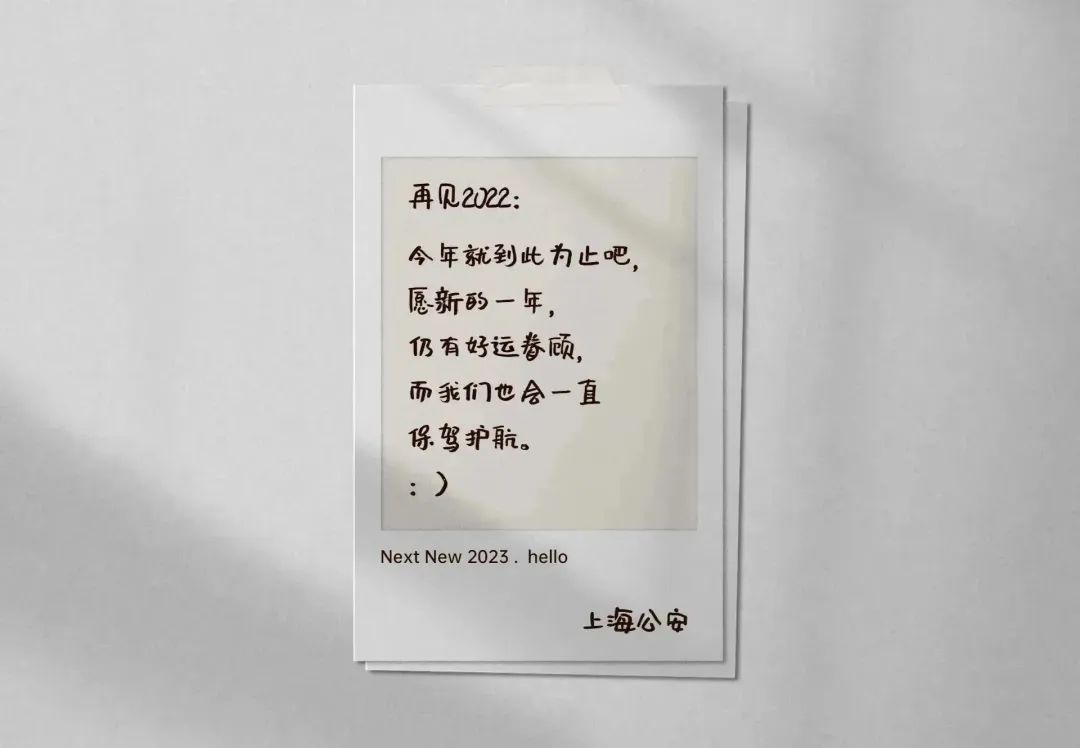 再见2022：
今年就到此为止吧，
愿新的一年，
仍有好运眷顾，
而我们也会一直
保驾护航。
：）
Next New 2023 . hello
上海公安